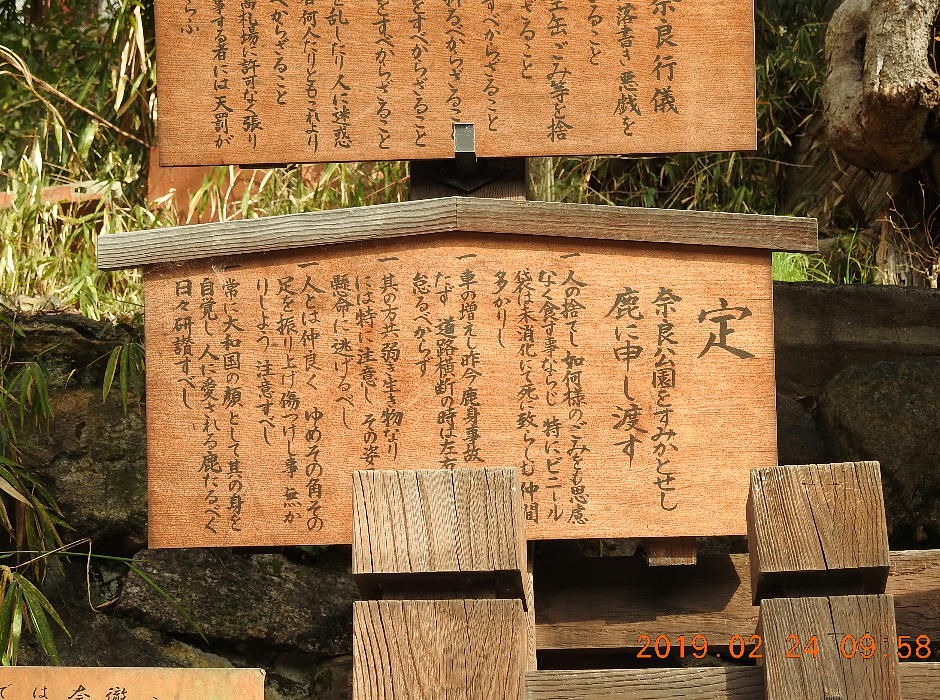 奈良行儀
落書き 悪戯を
ること
空缶ごみ等を捨
ざること
すべからざること
べからざること
をすべからざること
をすべからざること
乱したり 人に迷惑
何人たりともこれより
べからざること
高札場に許可なく張り
事する者には天罰が
定
奈良公園をすみかとせし
鹿に申し渡す
一 人の捨てし 如何様のごみをも思慮
なく食す事ならじ 特にビニール
袋は未消化にて死に致らしむ 仲間
多かりし
一 車の増えし昨今 鹿身事故
たず 道路横断の時は左右
怠るべからず
一 其の方共 弱き生き物なり
には特に注意し その姿
懸命に逃げるべし
一 人とは仲良く ゆめその角 その
足を振り上げ傷つけし事 無か
りしよう 注意すべし
一 常に大和国の顔として其の身を
自覚し 人に愛される鹿たるべく
日々研讃すべし
では 奈
2019.02 24 09:58